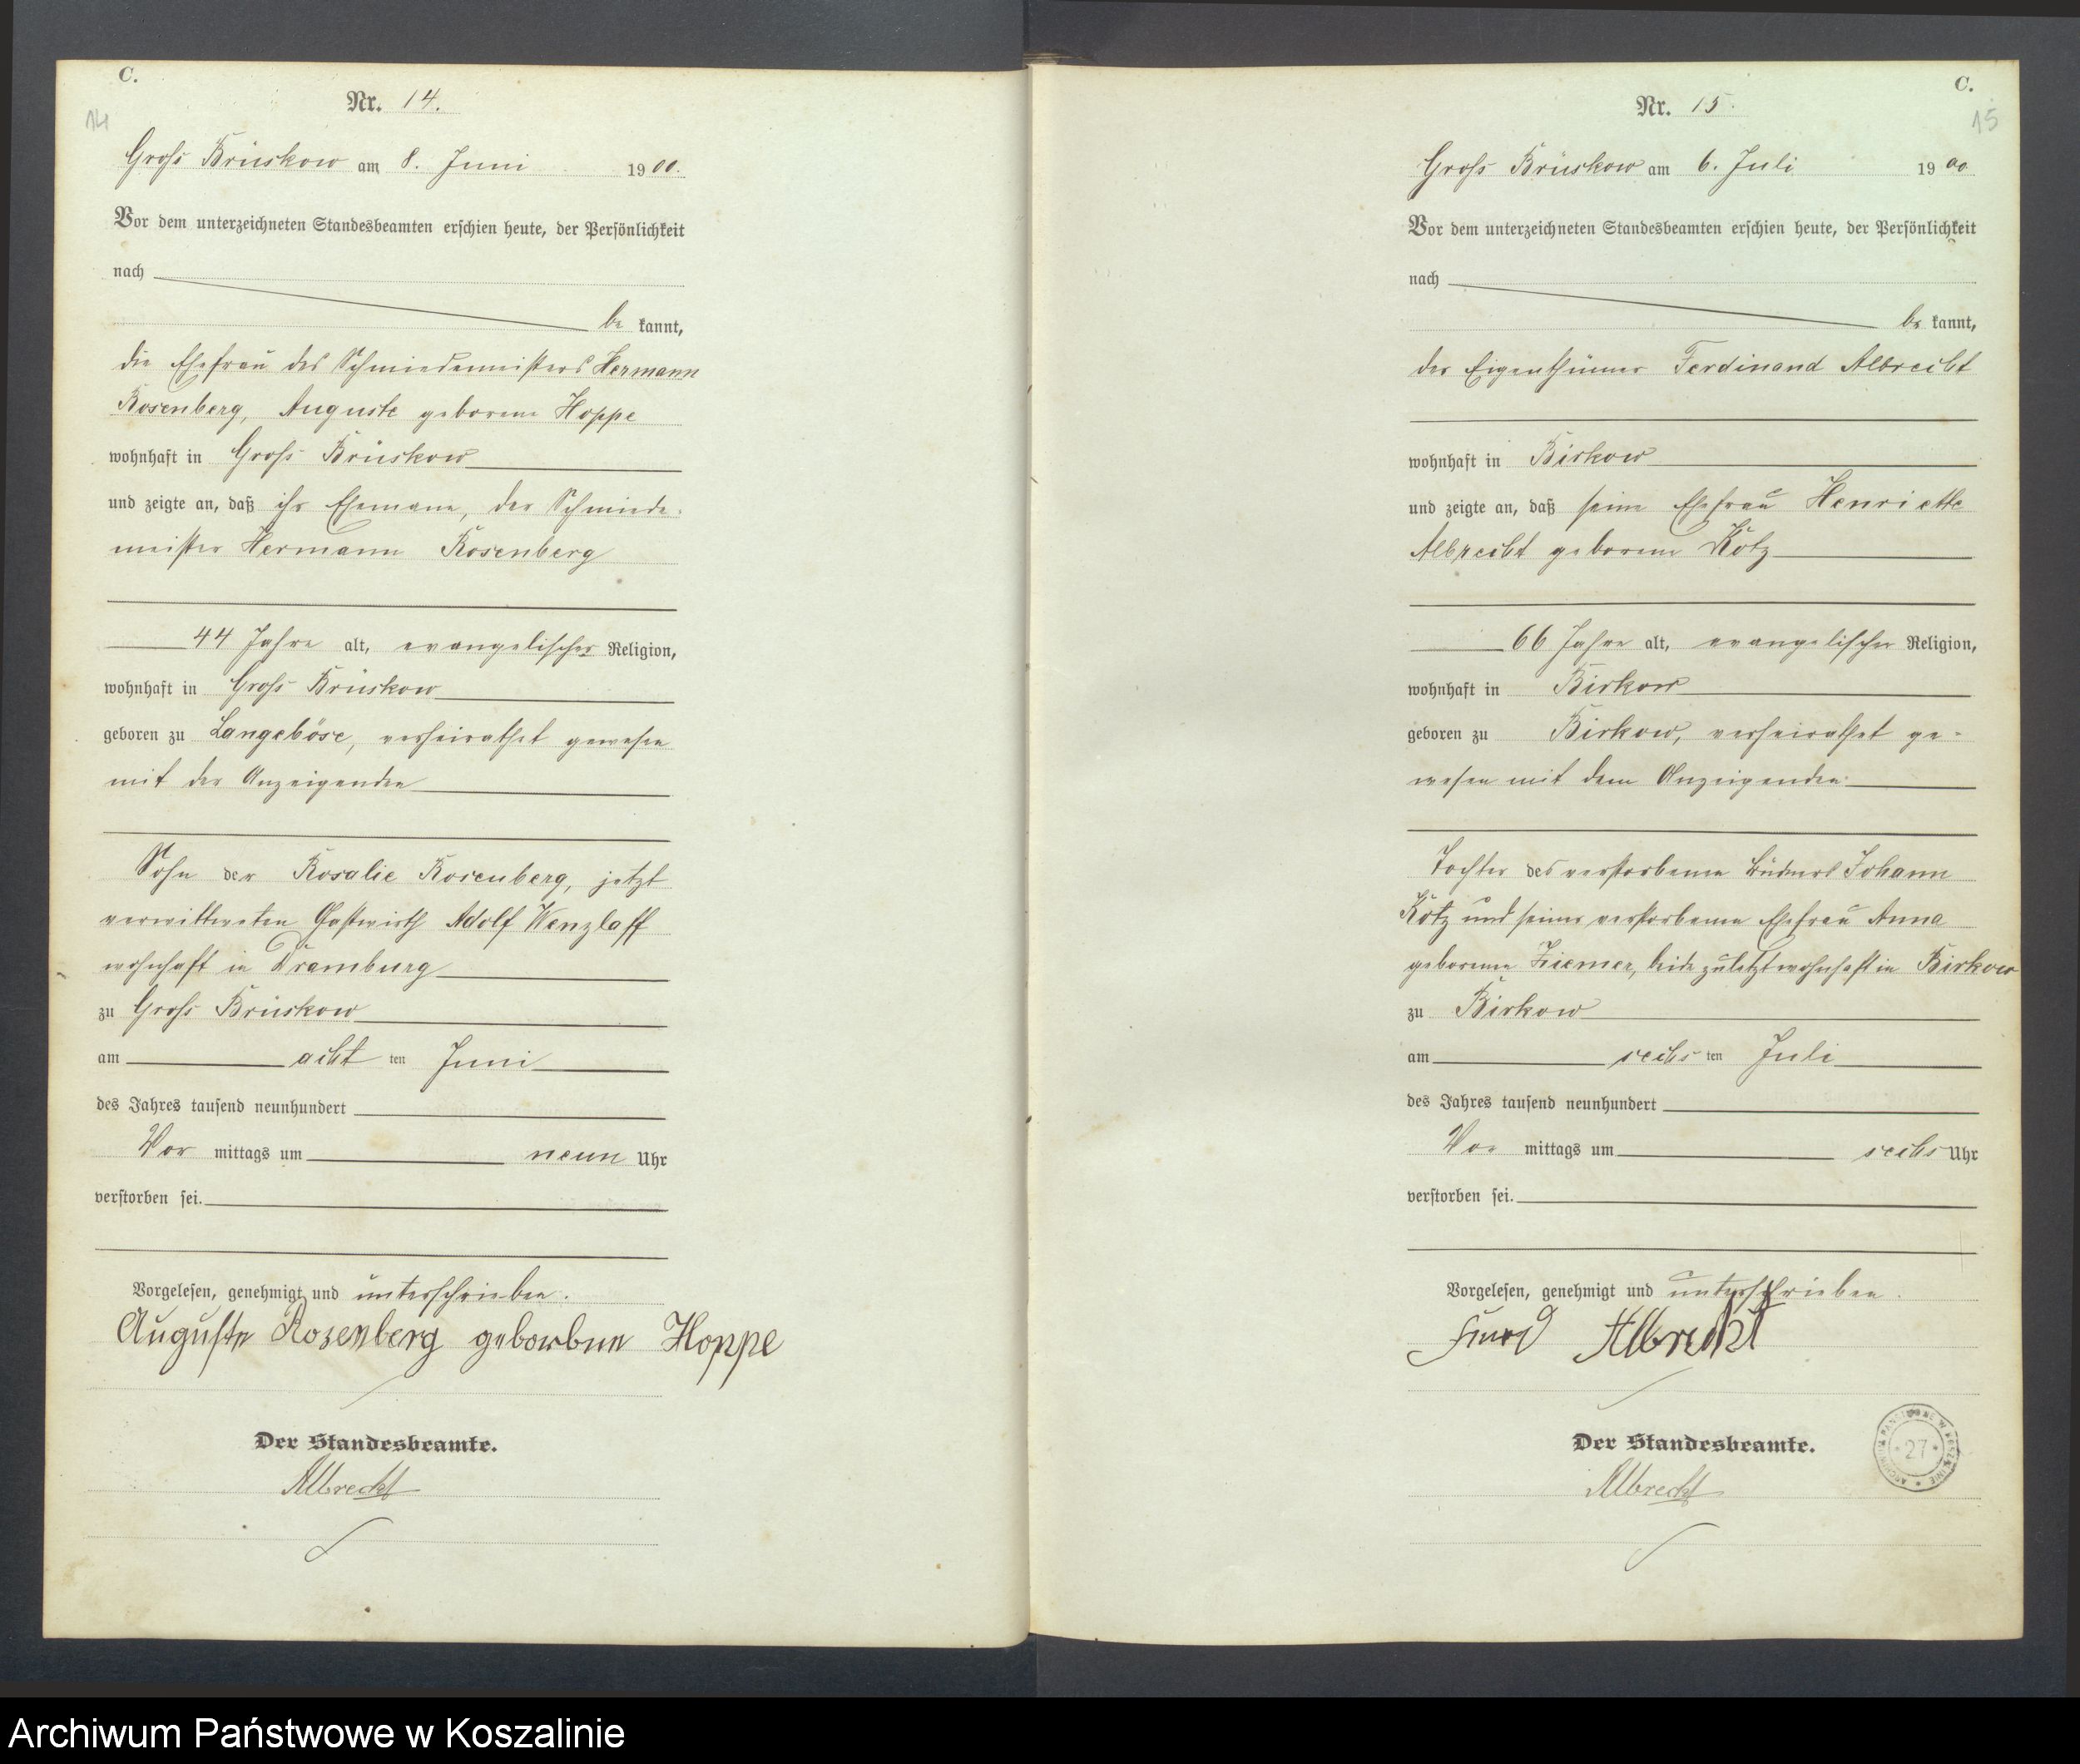 C.
14
Nr. 14.
Groß Brüskow am 8. Juni 1900.
Vor dem unterzeichneten Standesbeamten erschien heute, der Persönlichkeit
nach
be kannt,
die Ehefrau des Schmiedemeisters Hermann
Rosenberg, Auguste geborene Hoppe
wohnhaft in Groß Brüskow
und zeigte an, daß ihr Ehemann, der Schmiede-
meister Hermann Rosenberg
44 Jahre alt, evangelischer Religion,
wohnhaft in Groß Brüskow
geboren zu Langeböse, verheirathet gewesen
mit der Anzeigenden
Sohn der Rosalie Rosenberg, jetzt
verwittweten Gastwirth Adolf Wenzlaff
wohnhaft in Dramburg
zu Groß Brüskow
am acht ten Juni
des Jahres tausend neunhundert
Vor mittags um neun Uhr
verstorben sei.
Vorgelesen, genehmigt und unterschrieben.
Auguste Rosenberg geborbne Hoppe
Der Standesbeamte.
Albrecht
C.
15
Nr. 15.
Groß Brüskow am 6. Juli 1900
Vor dem unterzeichneten Standesbeamten erschien heute, der Persönlichkeit
nach
be kannt,
der Eigenthümer Ferdinand Albrecht
wohnhaft in Birkow
und zeigte an, daß seine Ehefrau Henriette
Albrecht geborene Kötz
66 Jahre alt, evangelischer Religion,
wohnhaft in Birkow
geboren zu Birkow, verheirathet ge-
wesen mit dem Anzeigenden.
Tochter des verstorbenen Büdners Johann
Kötz und seiner verstorbenen Ehefrau Anna
geborenen Ziemer, beide zuletzt wohnhaft in Birkow
zu Birkow
am sechs ten Juli
des Jahres tausend neunhundert
Vor mittags um sechs Uhr
verstorben sei.
Vorgelesen, genehmigt und unterschrieben.
Albrecht
Der Standesbeamte.
Albrecht
ARCHIWUM PAŃSTWOWE W KOSZALINIE
27
Archiwum Państwowe w Koszalinie